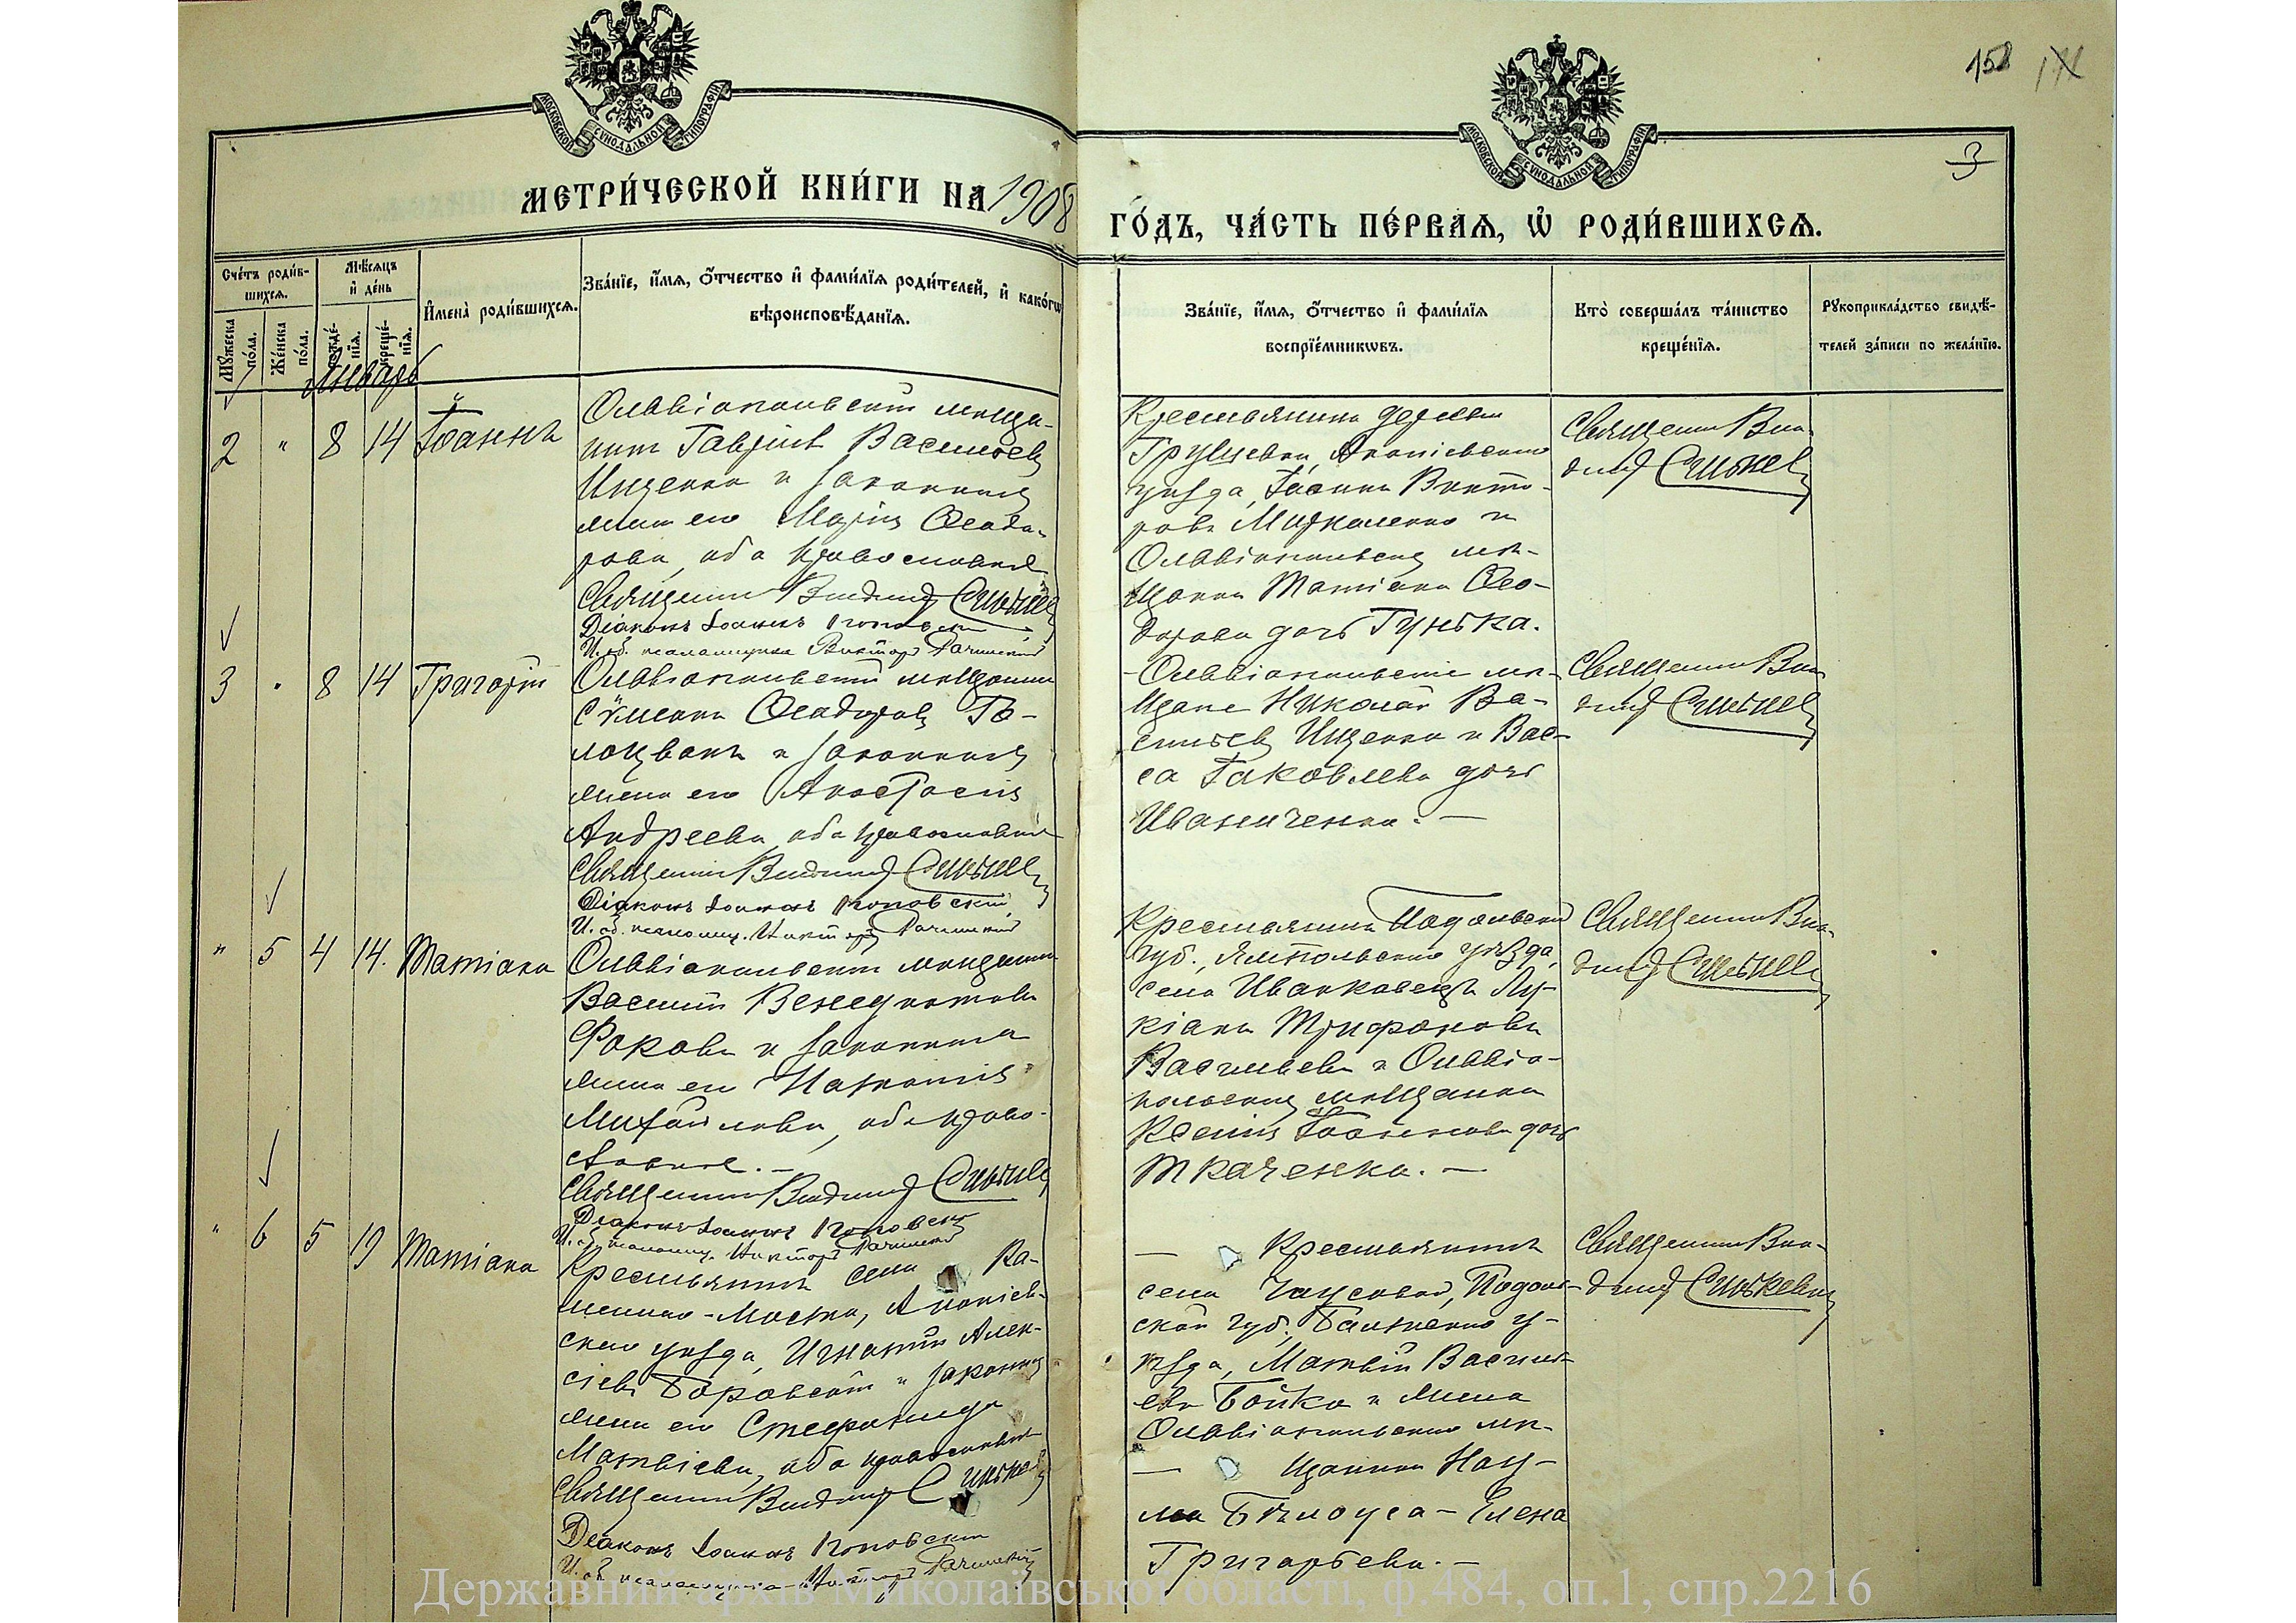 158
3
МОСКОВСКОЙ СѴНОДАЛЬНОЙ ТИПОГРАФІИ
МОСКОВСКОЙ СѴНОДАЛЬНОЙ ТИПОГРАФІИ
МЕТРИ́ЧЕСКОЙ КНИ́ГИ НА 1908
ГО́ДЪ, ЧА́СТЬ ПЕ́РВАЯ, Ѡ҆ РОДИ́ВШИХСЯ.
Сче́тъ роди́в-
шихся.
Мѣ́сяцъ
и҆ де́нь
Му́жеска по́ла.
Же́нска по́ла.
рожде́-
нія.
креще́-
нія.
И҆мена̀ роди́вшихся.
Зва́ніе, и҆́мя, ѻ҆́тчество и҆ фами́лія роди́телей, и҆ како́гѡ
вѣроисповѣ́данія.
Зва́ніе, и҆́мя, ѻ҆́тчество и҆ фами́лія
воспріе́мникѡвъ.
Кто̀ соверша́лъ та́инство
креще́нія.
Рукоприкла́дство свидѣ́-
телей за́писи по жела́нію.
Январь
2 " 8 14 Іоаннъ
Ольвіопольскій мѣща-
нинъ Гавріилъ Васильевъ
Ищенко и законная
жена его Марія Ѳеодо-
рова, оба православные
Священникъ Владимір
Діаконъ Іоаннъ
И. об. псаломщика Викторъ
Крестьянинъ деревни
Ананіевскаго
уѣзда, Іоаннъ Викто-
ровъ и
Ольвіопольская мѣ-
щанка Татіана Ѳео-
дорова дочь Гунька.
Священникъ Вла-
димір
3 " 8 14 Григорій
Ольвіопольскій мѣщанинъ
Сѵмеонъ Ѳеодоровъ Го-
лоцванъ и законная
жена его Анастасія
Андреева, оба православные
Священникъ Владимір
Діаконъ Іоаннъ
И. об. псаломщ. Викторъ
Ольвіопольскіе мѣ-
щане Николай Ва-
сильевъ Ищенко и Вас-
са Іаковлева дочь
Иваниченко. —
Священникъ Вла-
димір
" 5 4 14. Татіана
Ольвіопольскій мѣщанинъ
Василій Венедиктовъ
Фоковъ и законная
жена его Наталія
Михайлова, оба право-
славные. —
Священникъ Владимір
Діаконъ Іоаннъ
И. об. псаломщ. Викторъ
Крестьянинъ Подольской
губ., Ямпольскаго уѣзда,
села Иванковецъ Лу-
кіанъ Трифоновъ
Васильевъ и Ольвіо-
польская мѣщанка
Ксенія Іоаннова дочь
Ткаченко. —
Священникъ Вла-
димір
" 6 5 19 Татіана
Крестьянинъ села Ка-
меннаго-Моста, Ананіев-
скаго уѣзда, Игнатій Алек-
сіевъ Боровскій и законная
жена его Стефанида
Матвіева, оба православные
Священникъ Владимір
Діаконъ Іоаннъ
И. об. псаломщика Викторъ
— Крестьянинъ
села Чаусовой, Подоль-
ской губ., Балтскаго у-
ѣзда, Матвій Василь-
евъ Бойко и жена
Ольвіопольскаго мѣ-
— щанина Нау-
ма Бѣлоуса — Елена
Григорьева. —
Священникъ Вла-
димір
Державний архів Миколаївської області, ф.484, оп.1, спр.2216